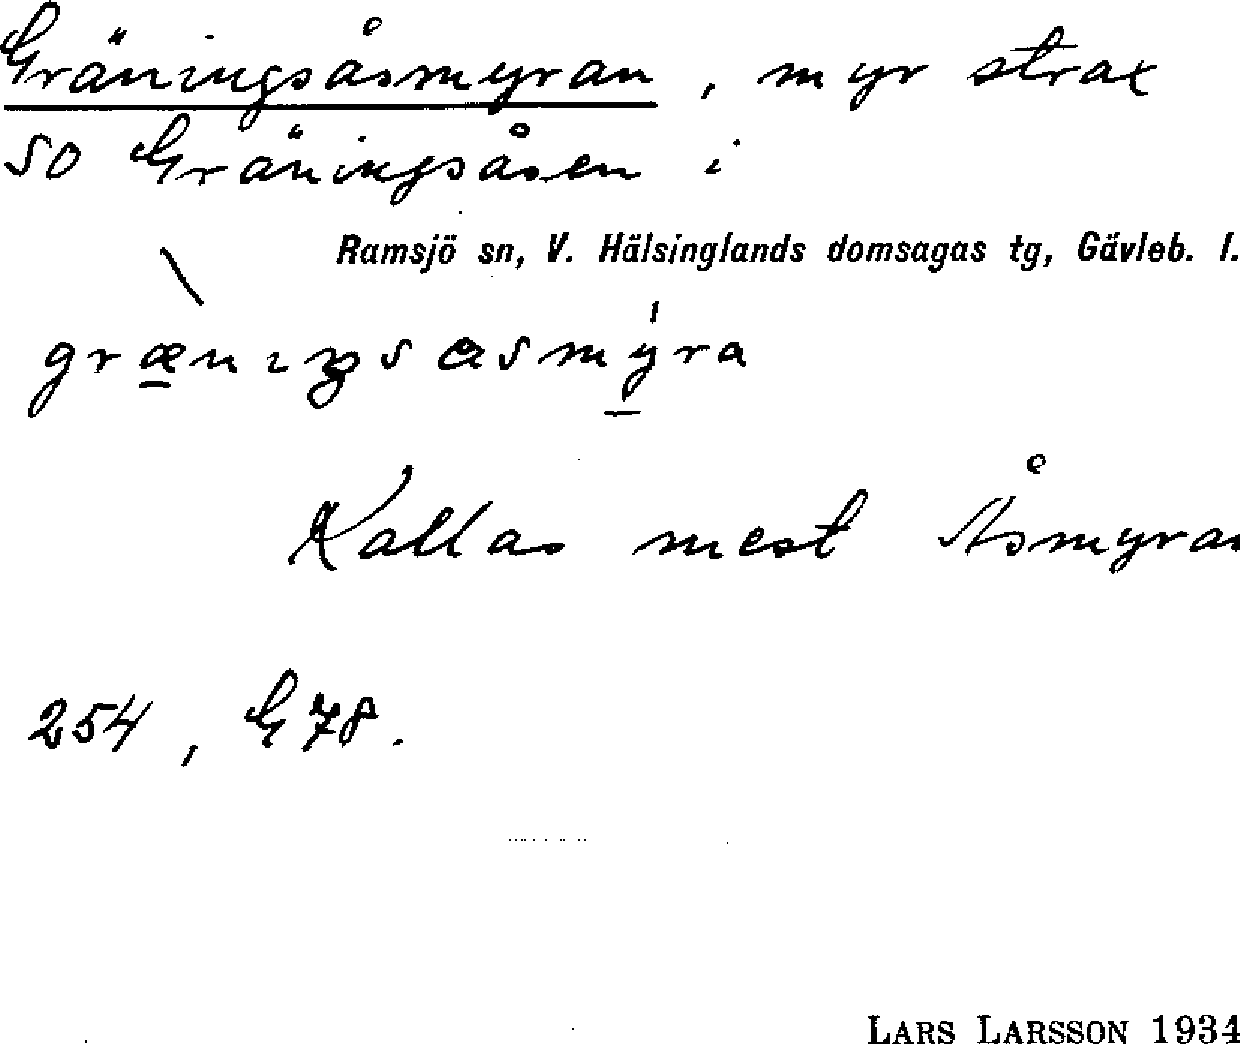 Gräningsåsmyran, myr strax
SO Gräningsåsen i
Ramsjö sn, V. Hälsinglands domsagas tg, Gävleb. l.
græ̱nıŋsåsmy̱ra
Kallas mest Åsmyran
254, G78.
LARS LARSSON 1934